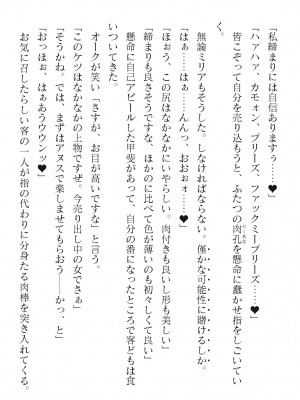 「私締まりには自信ありますぅ……♥」
「ハァハァ、カモォン、プリーズ、ファックミープリーズ……♥」
皆こぞって自分を売り込もうと、ふたつの肉孔を懸命に蠢かせ指をしごいてい
く。
無論ミリアもそうした。しなければならない。僅かな可能性に賭けるしか。
「はぁ……はぁ……んんっ、おおぉォ……♥」
「ほぉう、この尻はなかなかにいやらしい。肉付きも良いし形も美しい」
「締まりも良さそうですな、ほかのに比べて色が薄いのも初々しくて良い」
懸命に自己アピールした甲斐があって、自分の番になったところで客どもは食
いついてきた。
オークが笑い「さすが、お目が高いですな」と言う。
「このケツはなかなかの上物ですぜ。今売り出し中の女でさぁ」
「そうかね。では、まずはアヌスで楽しませてもらおう――かっ、と」
「おっほぉ、はぁあうウウンッ♥」
お気に召したらしい客の一人が指の代わりに分身たる肉棒を突き入れてくる。